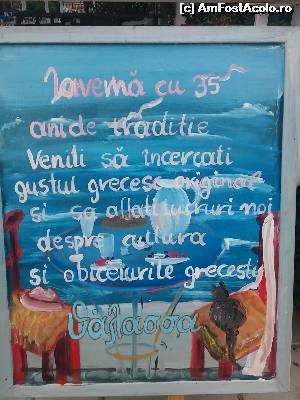 (c) AmFostAcolo.ro
Tavernă cu 35
ani de traditie
Veniti să incercati
gustul grecesc original
si sa aflati lucruri noi
despre cultura
si obiceiurile grecesti
θάλασσα